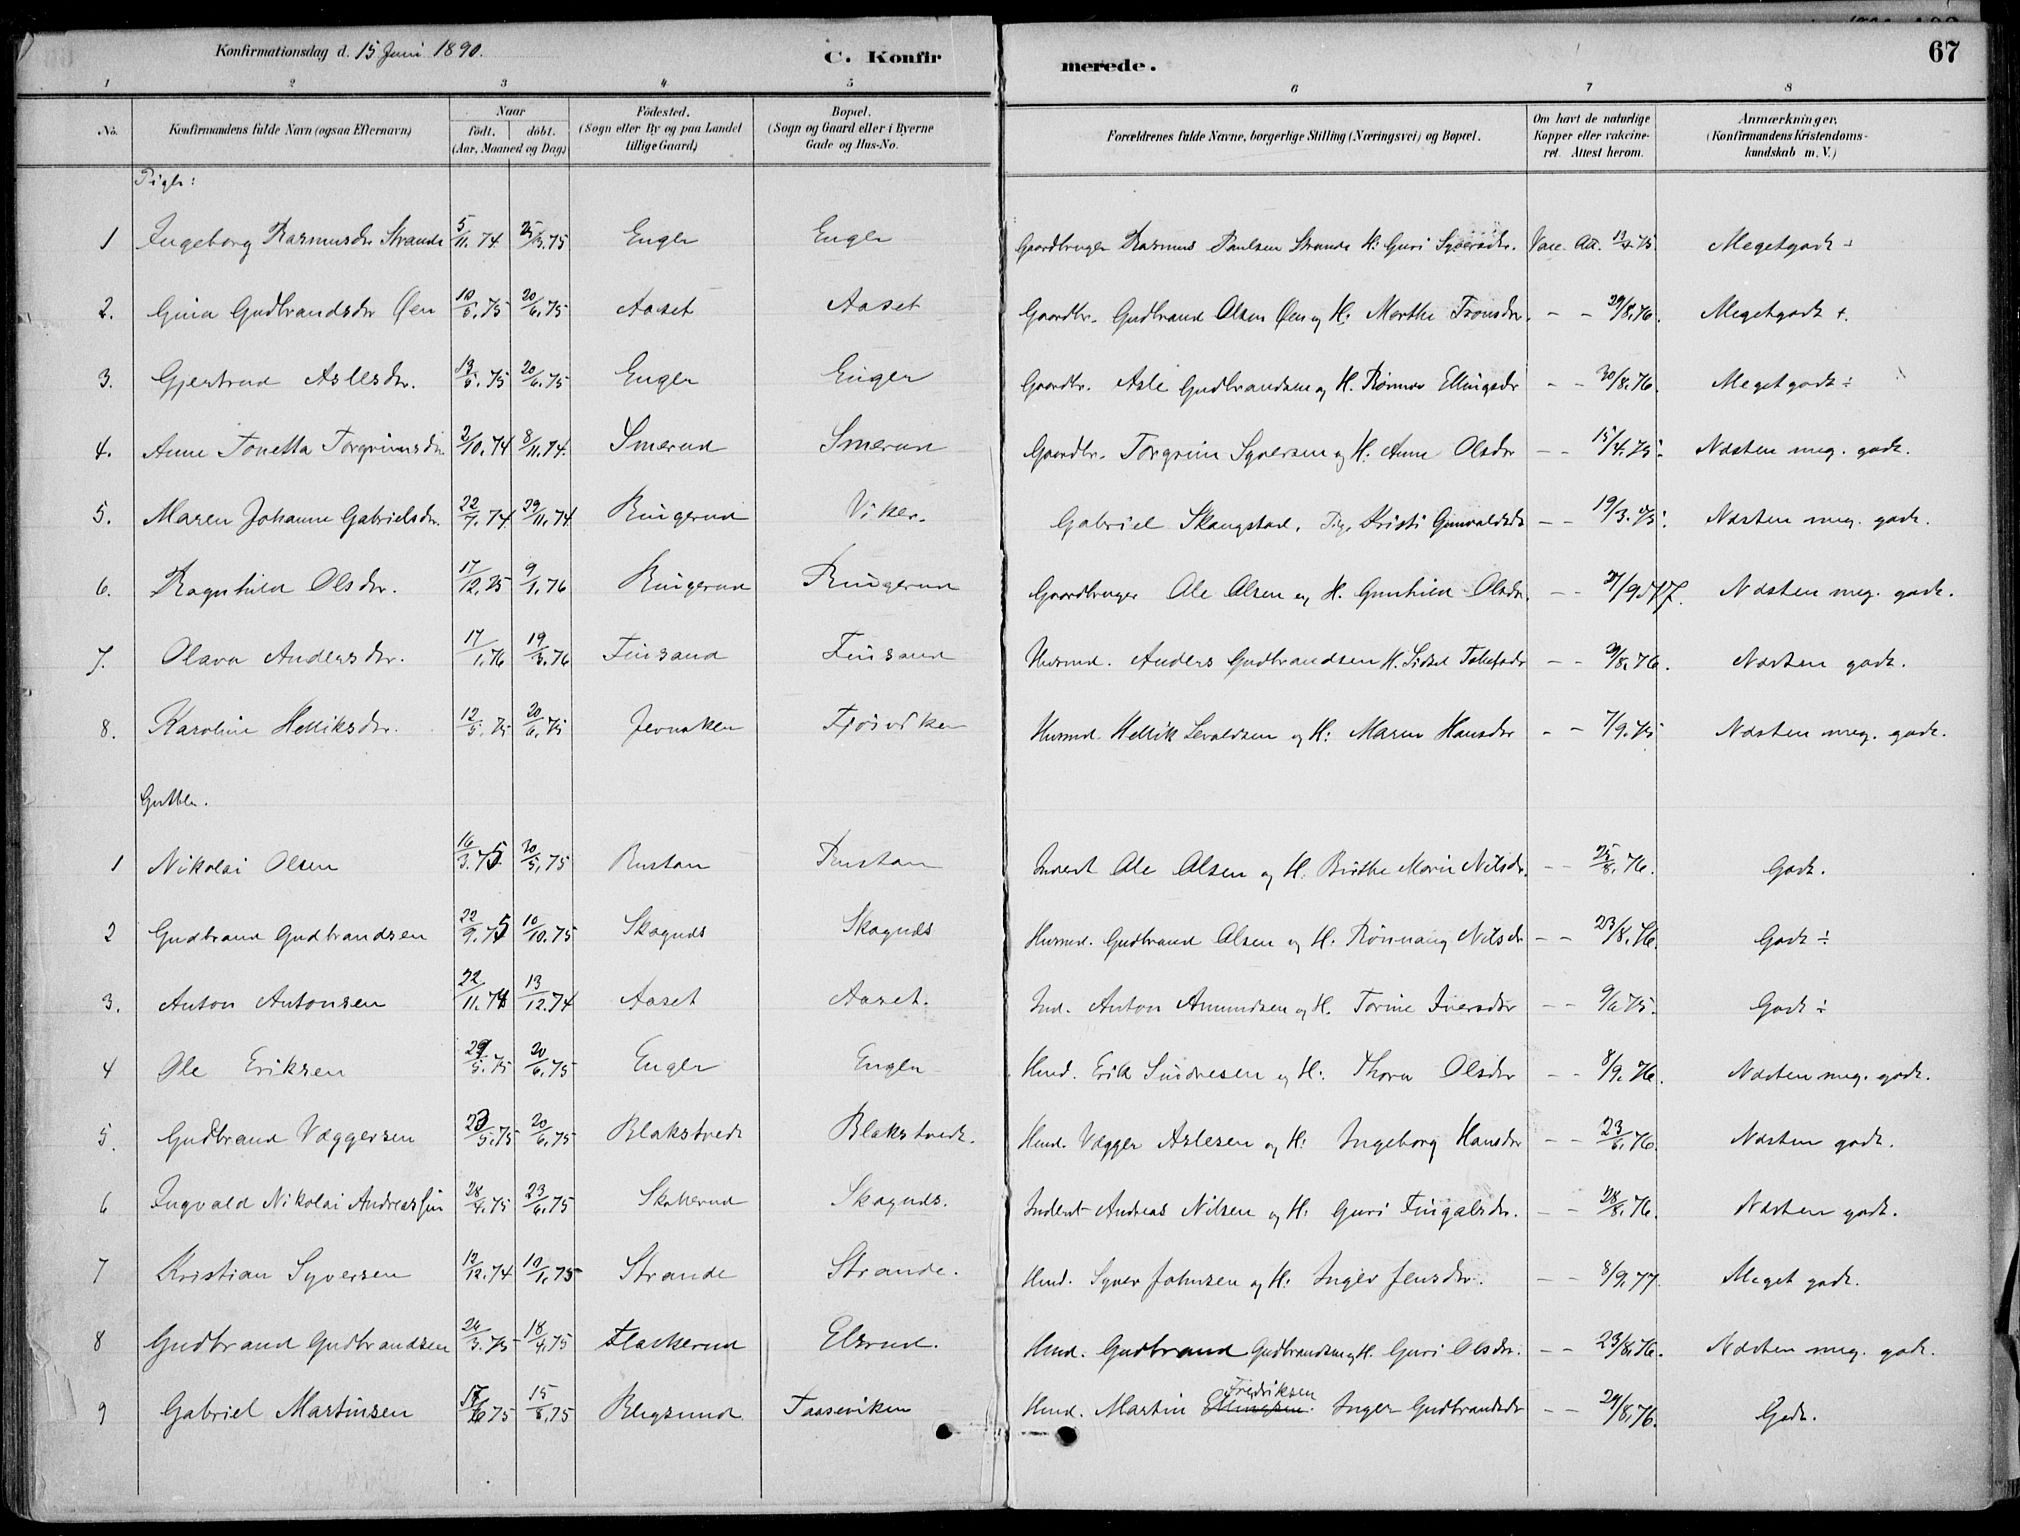 Konfirmationsdag d. 15 Juni 1890. C. Konfirmerede. 67
1 2 3 4 5 6 7 8
No. Konfirmandens fulde Navn (ogsaa Efternavn) Naar født. døbt. (Aar, Maaned og Dag) Fødested. (Sogn eller By og paa Landet tillige Gaard) Bopæl. (Sogn og Gaard eller i Byerne Gade og Hus-No. Forældrenes fulde Navne, borgerlige Stilling (Næringsvei) og Bopæl. Om havt de naturlige Kopper eller vakcineret. Attest herom. Anmærkninger. (Konfirmandens Kristendomskundskab m. V.)
Piger:
1 Ingeborg Rasmusdr Strande 5/11.74 75 Enger Enger Gaardbruger Rasmus Paulsen Strande H: Guri Syversdr. Vacc. Att. 75 Megetgodt
2. Gina Gudbrandsdr Øen 75 20/6.75 Aaset Aaset Gaardbr. Gudbrand Olsen Øen og H: Marthe Tronsdr. - - 29/8.76. Megetgodt +.
3. Gjertrud Aslesdr. 75 20/6.75 Enger Enger Gaardbr. Asle Gudbrandsen og H. Ellingsdr - - 30/8.76. Megetgodt ÷
4. Anne Tonetta Torgrimsdr. 2/10.74 8/11.74. Smerud Smerud Gaardbr. Torgrim Syversen og H: Anne Olsdr - - 75. Næsten meg. godt.
5. Maren Johanne Gabrielsdr. 74 29/11.74 Ringerud Viker. Gabriel Skaugstad, Pig. Kristi Gunvaldsdr - - 19/3.75. Næsten meg. godt.
6. Ragnhild Olsdr. 17/12.75 9/1.76 Ringerud Ringerud Gaardbruger Ole Olsen og H. Gunhild Olsdr. - - 77. Næsten meg. godt.
7. Olava Andersdr. 17/1.76 19/3.76 Finsand Finsand Husmd. Anders Gudbrandsen H. Sidsel - - 76. Næsten godt.
8. Karoline Helliksdr. 12/5.75 20/6.75 Jevnaker Husmd. Hellik Levaldsen og H: Maren Hansdr - - 7/9.75 Næsten meg. godt.
Gutter.
1 Nikolai Olsen 16/3.75 30/5.75 Rustan Rustan Inderst Ole Olsen og H. Birthe Marie Nilsdr. - - 25/8.76. Godt.
2 Gudbrand Gudbrandsen 22/9.75 10/10.75 Skagnds Skagnds Husmd. Gudbrand Olsen og H: Rønnaug Nilsdr - - 23/8.76. Godt ÷
3. Anton Antonsen 22/11.74 13/12.74 Aaset Aaset. Ind. Anton Amundsen og H. Torine Iversdtr - - 9/6.75. Godt ÷
4 Ole Eriksen 29/5.75 20/6.75 Enger Enger Hmd. Erik Sindresen og H: Thora Olsdtr - - 8/9.76. Næsten meg. godt.
5. Gudbrand Væggersen 75 20/6.75 Blakstvedt Blakstvedt. Hmd. Vægger Aslesen og H: Ingeborg Hansdr - - 76. Næsten godt.
6 Ingvald Nikolai Andreassen 28/4.75 23/6.75 Skollerud Skagnds. Inderst Andreas Nilsen og H: Guri Fingalsdr. - - 28/8.76. Næsten godt.
7 Kristian Syversen 12/12.74 10/1.75 Strande Strande. Hmd. Syver Johnsen og H: Inger Jensdr. - - 8/9.77. Meget godt.
8 Gudbrand Gudbrandsen 24/3.75 18/4.75 Flaskerud Elsrud. Hmd. Gudbrand Gudbrandsen og H. Guri Olsdr. - - 23/8.76. Næsten meg. godt.
9 Gabriel Martinsen 75 15/8.75 Bergsund Taaseviken Hmd. Martin Ellingsen. Fredriksen Inger Gudbrandsdr - - 29/8.76. Godt.